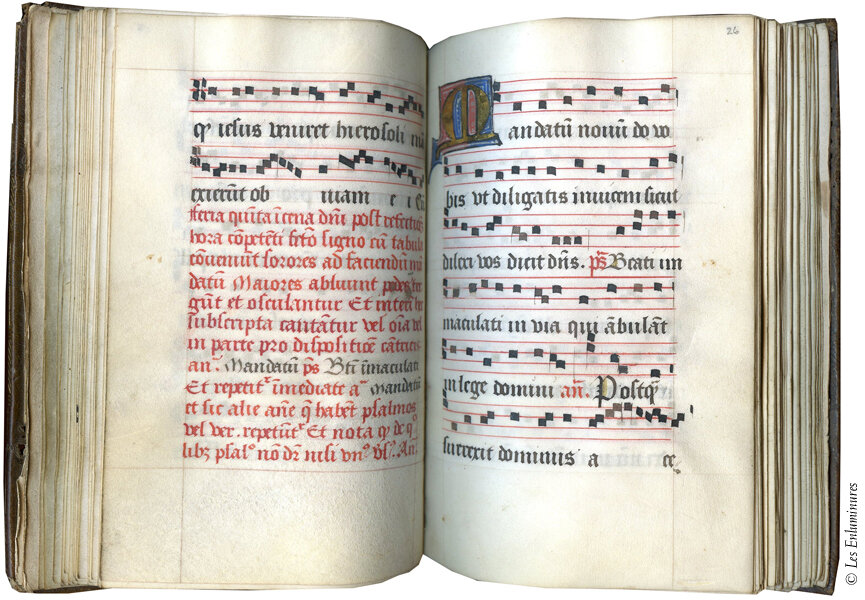 qͥ iesus veniret hierosoli mā
exierūt ob uiam e i Cū
feria quita ī cena dn̄i post refectiōꝫ
hora cōpetēti fc̄to signo cū tabula
cōveniūt sorores ad faciendū mā
datū Maiores abluunt pedes ter
gūt et osculantur Et interī hec
subscripta cantātur vel oīa vel
in parte pro dispositiōe cātricis
an̄. Mandatū p̄s Bt̄i īmaculati
Et repetit᷑ īmediate a᷑ mandatū
et sic alie an̄e q̄ habēt psalmos
vel ver. repetūt᷑ Et nota qͥ de qͦ
libꝫ psalͦ nō dr̄ nisi vnͦ v̄s. An̄.
26
Mandatū nouū do vo
bis vt diligatis inuicem sicut
dilexi vos dicit dn̄s. p̄s Beati im
maculati in via qui ābulāt
in lege domini an̄. Postqͣ̄
surrexit dominus a ce
© Les Enluminures